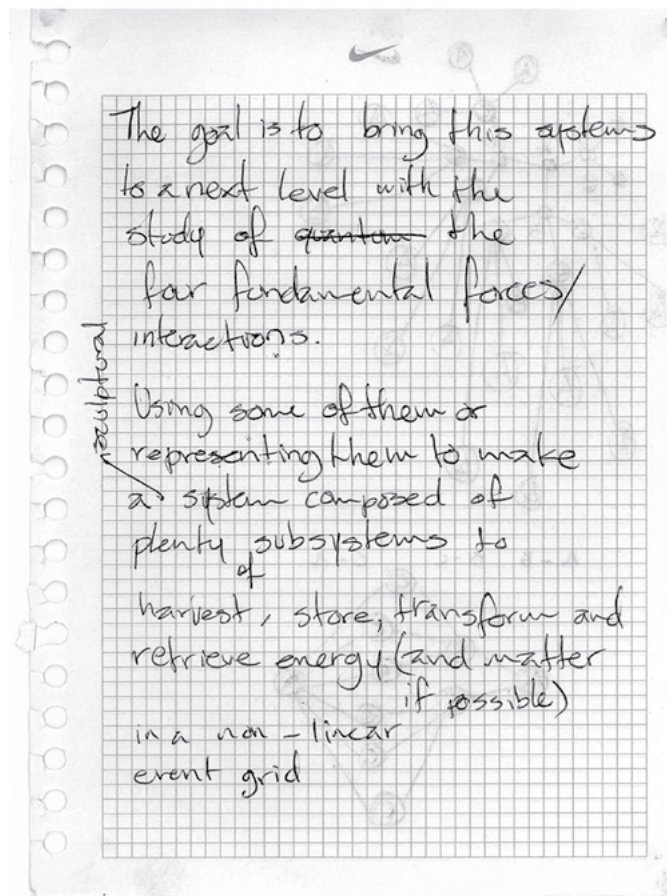 The goal is to bring this systems
to a next level with the
study of quantum the
four fundamental forces/
interactions.
Using some of them or
representing them to make
a sculptural system composed of
plenty of subsystems to
harvest, store, transform and
retrieve energy (and matter
if possible)
in a non-linear
event grid